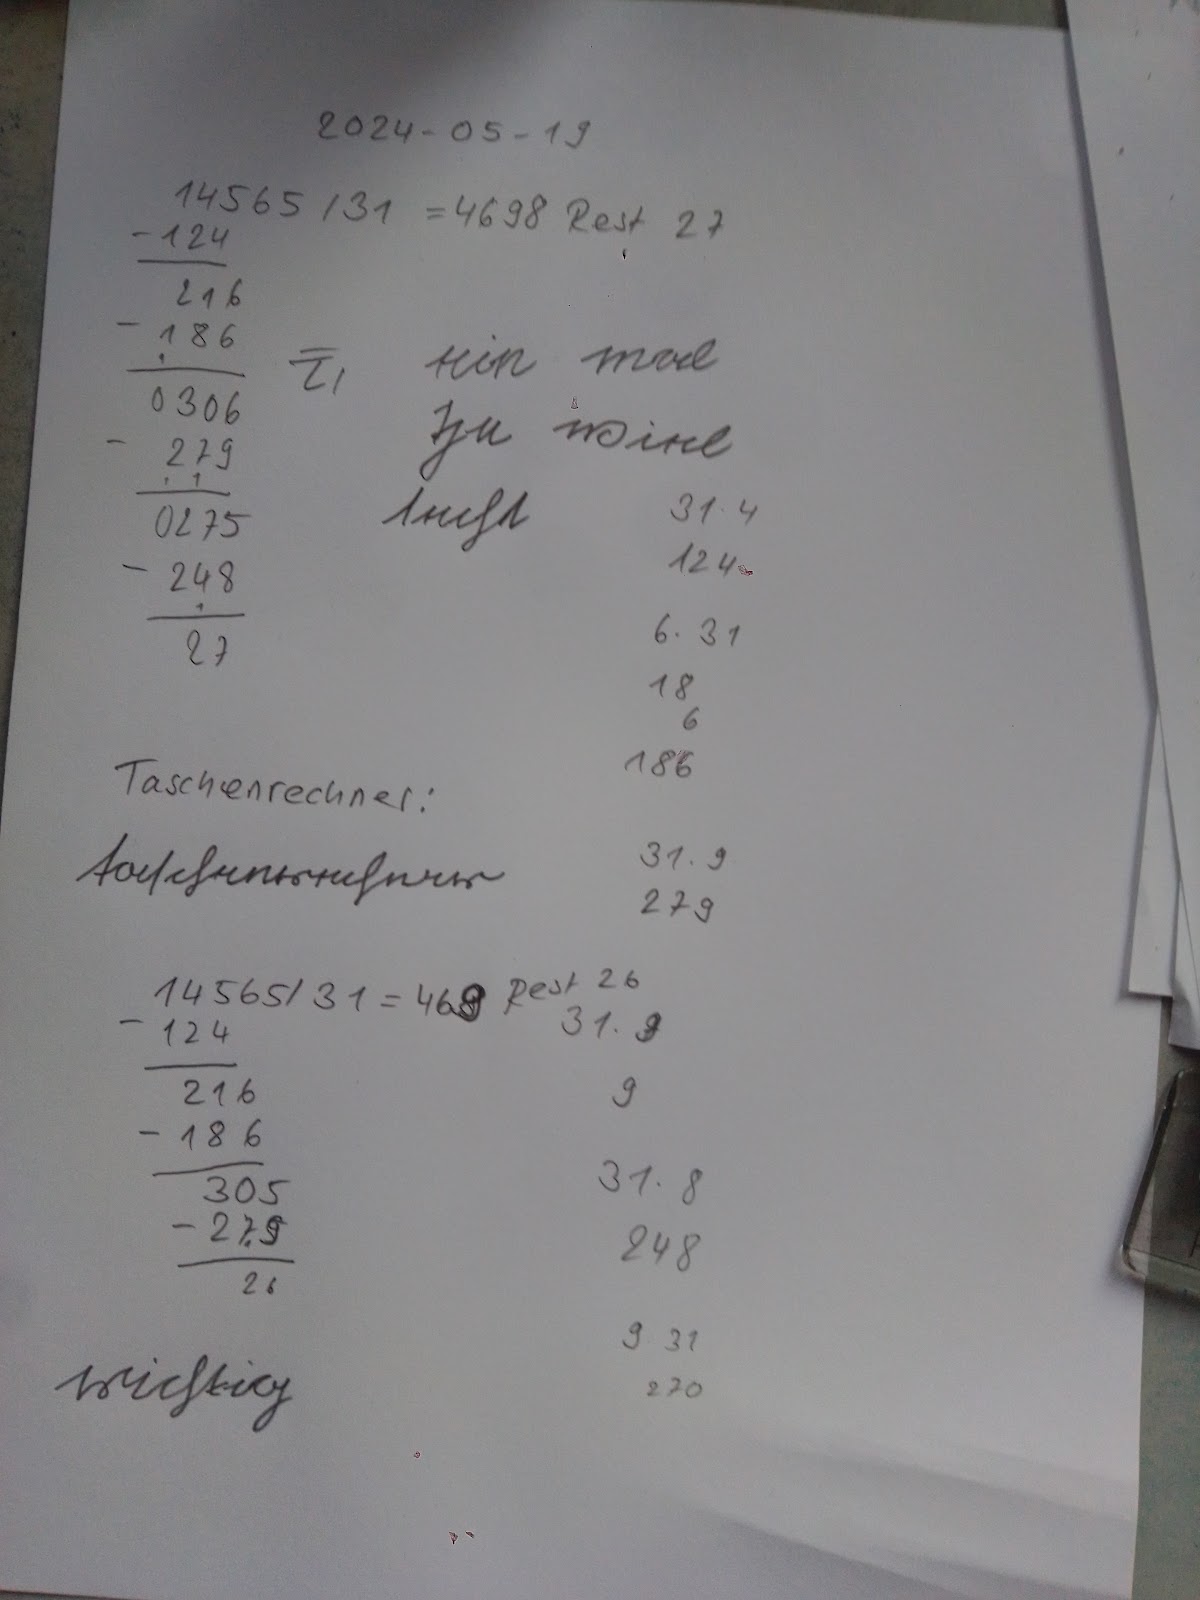 2024-05-19
14565 / 31 = 4698 Rest 27
-124
216
- 186
0306
- 279
0275
- 248
27
ein mal
zu viele
31·4
124
6·31
18
6
186
Taschenrechner:
taschenrechner
31·9
279
14565 / 31 = 469 Rest 26
- 124
216
- 186
305
- 279
26
31·9
9
31·8
248
9 31
270
wichtig